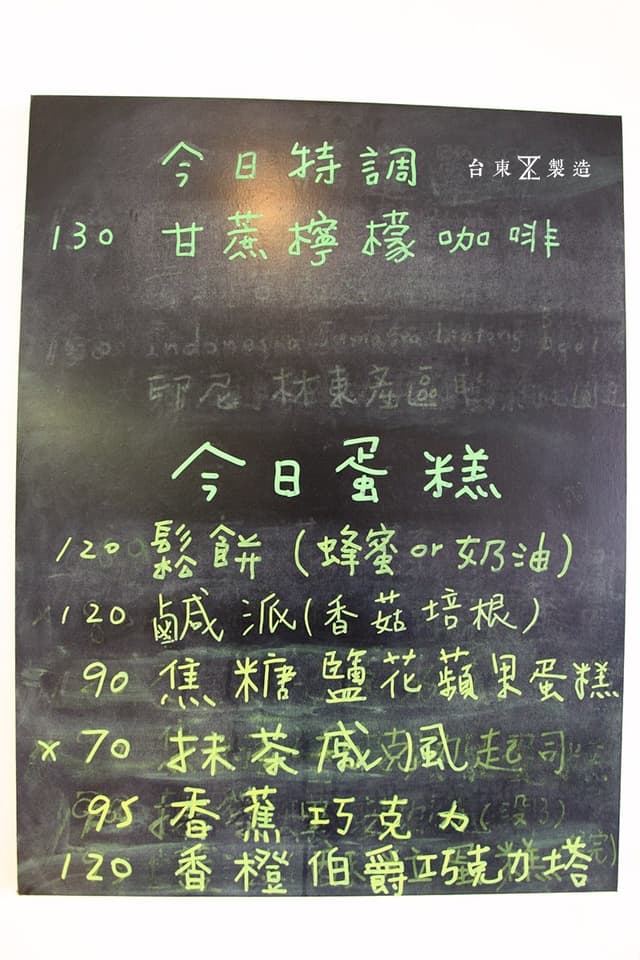 今日特調
台東製造
130 甘蔗檸檬咖啡
Indonesia
印尼 林東產區
今日蛋糕
120 鬆餅(蜂蜜or奶油)
120 鹹派(香菇培根)
90 焦糖鹽花蘋果蛋糕
x 70 抹茶戚風
95 香蕉巧克力
120 香橙伯爵巧克力塔